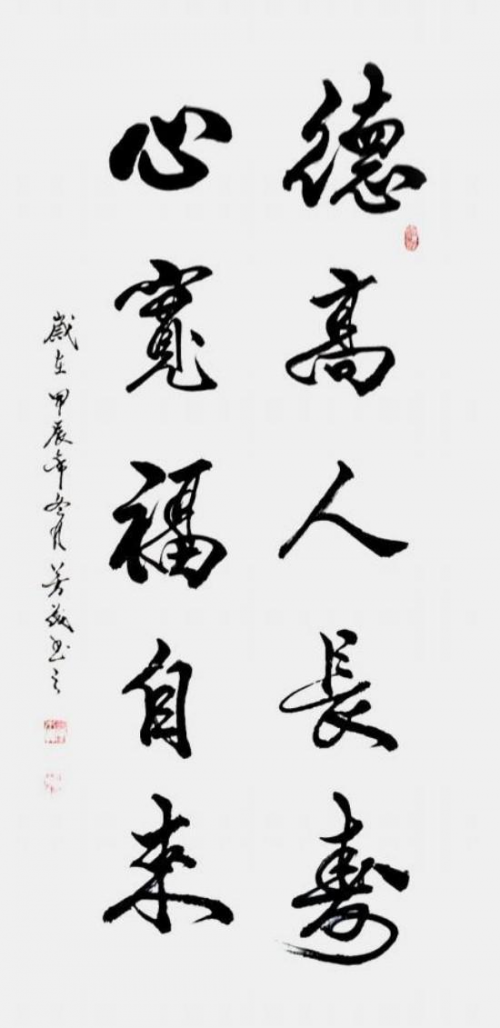 德高人長壽
心寬福自來
歲在甲辰年冬月芳義書之